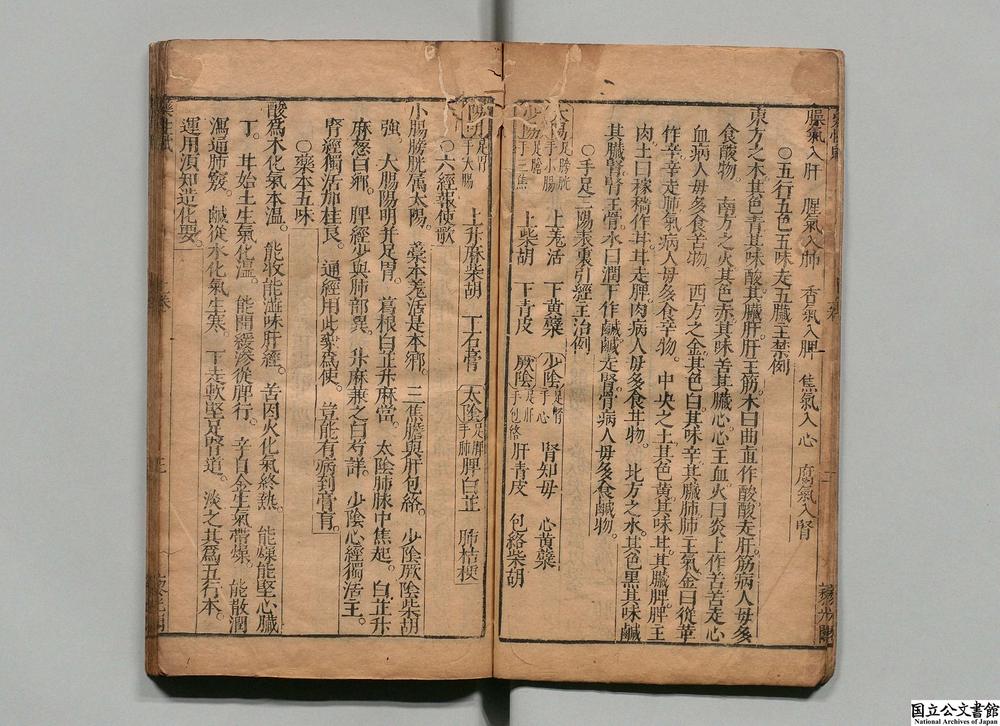 臊氣入肝　腥氣入肺　香氣入脾　焦氣入心　腐氣入腎
○五行五色五味走五臟主禁例
東方之木其色青其味酸其臟肝肝主筋木曰曲直作酸酸走肝筋病人毋多
食酸物。　南方之火其色赤其味苦其臟心心主血火曰炎上作苦苦走心
血病人毋多食苦物。　西方之金其色白其味辛其臟肺肺主氣金曰從革
作辛辛走肺氣病人毋多食辛物。　中央之土其色黃其味甘其臟脾脾主
肉土曰稼穡作甘甘走脾肉病人毋多食甘物。　北方之水其色黑其味鹹
其臟腎腎主骨水曰潤下作鹹鹹走腎骨病人毋多食鹹物。
○手足三陽表裏引經主治例
太陽足膀胱手小腸　上羌活　下黃蘗　少陰足腎手心　腎知母　心黃蘗
少陽足膽手三焦　上柴胡　下青皮　厥陰足肝手包絡　肝青皮　包絡柴胡
陽明足胃手大腸　上升麻柴胡　下石膏　太陰足脾手肺　脾白芷　肺桔梗
○六經報使歌
小腸膀胱屬太陽。　藁本羌活是本鄉。　三焦膽與肝包絡。　少陰厥陰柴胡
強。　大腸陽明并足胃。　葛根白芷升麻當。　太陰肺脉中焦起。　白芷升
麻葱白鄉。　脾經少與肺部異。　升麻兼之白芍詳　少陰心經獨活主。
腎經獨活加桂良。　通經用此藥爲使。　豈能有病到膏肓。
○藥本五味
酸爲木化氣本温。　能收能澁味肝經。　苦因火化氣終熱。　能燥能堅心臟
丁。　甘始土生氣化温。　能開緩滲從脾行。　辛自金生氣帶燥。　能散潤
瀉通肺竅。　鹹從水化氣生寒。　下走軟堅足腎道。　淡之其爲五行本。
運用須知造化要。
国立公文書館
National Archives of Japan